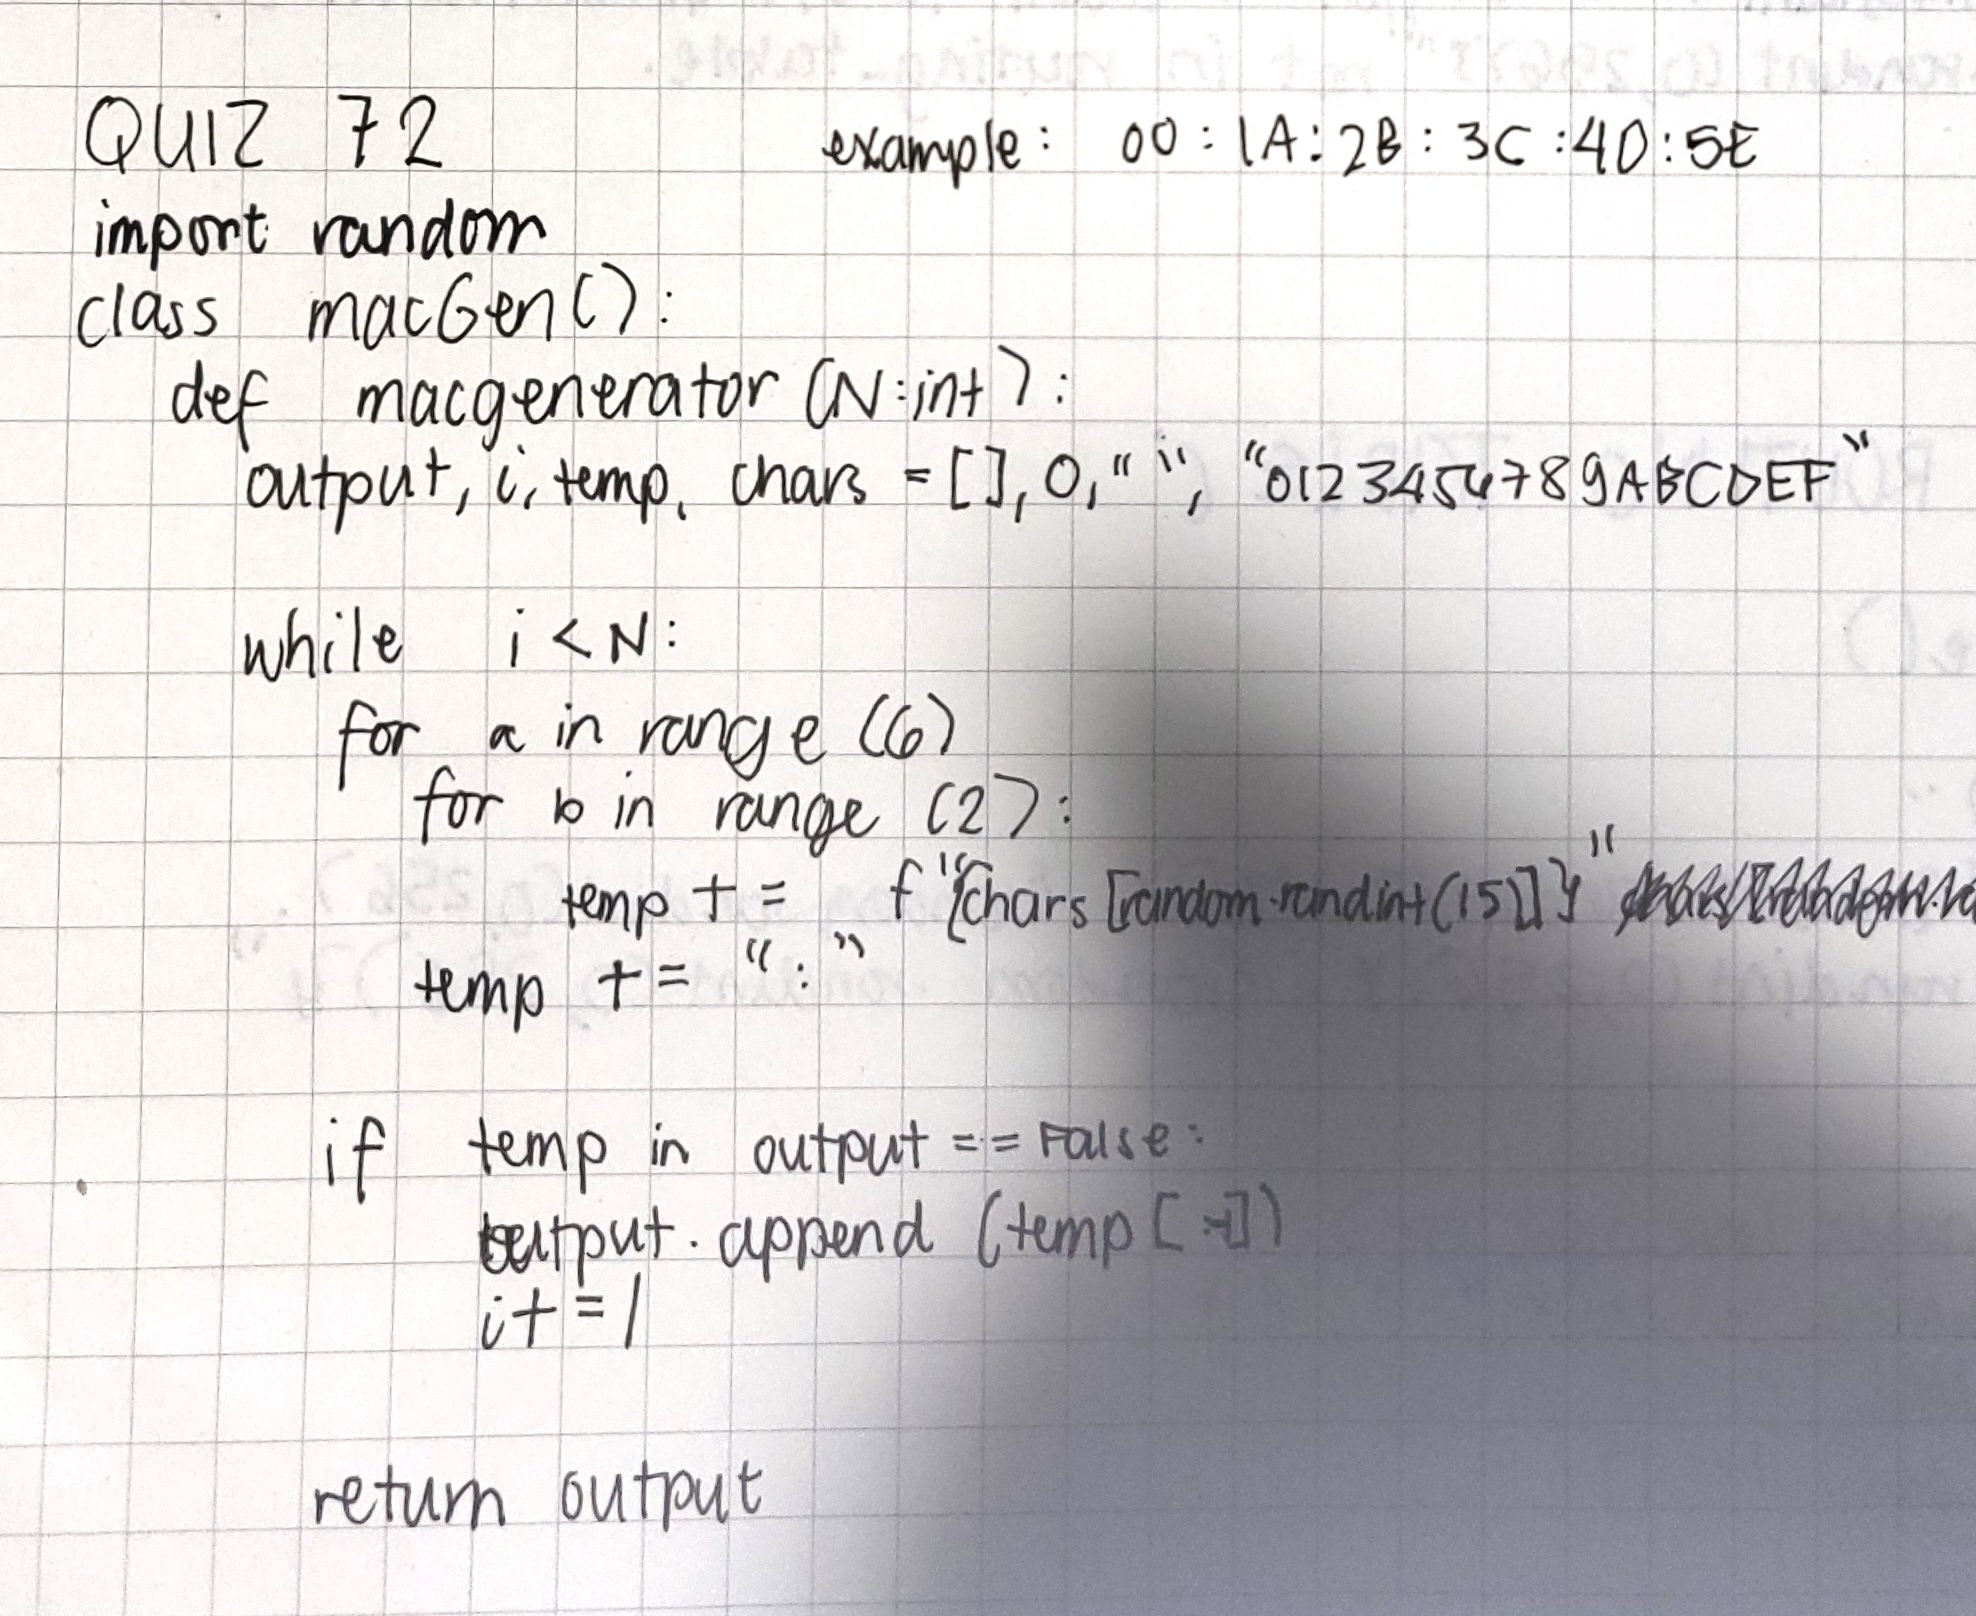 QUIZ 72
example: 00:1A:2B:3C:4D:5E
import random
class macGen():
def macgenerator (N:int):
output, i, temp, chars = [], 0, "", "0123456789ABCDEF"
while i < N:
for a in range (6)
for b in range (2):
temp += f"{chars [random.randint(15)]}"
temp += ":"
if temp in output == False:
output.append (temp [:-1])
i+=1
return output